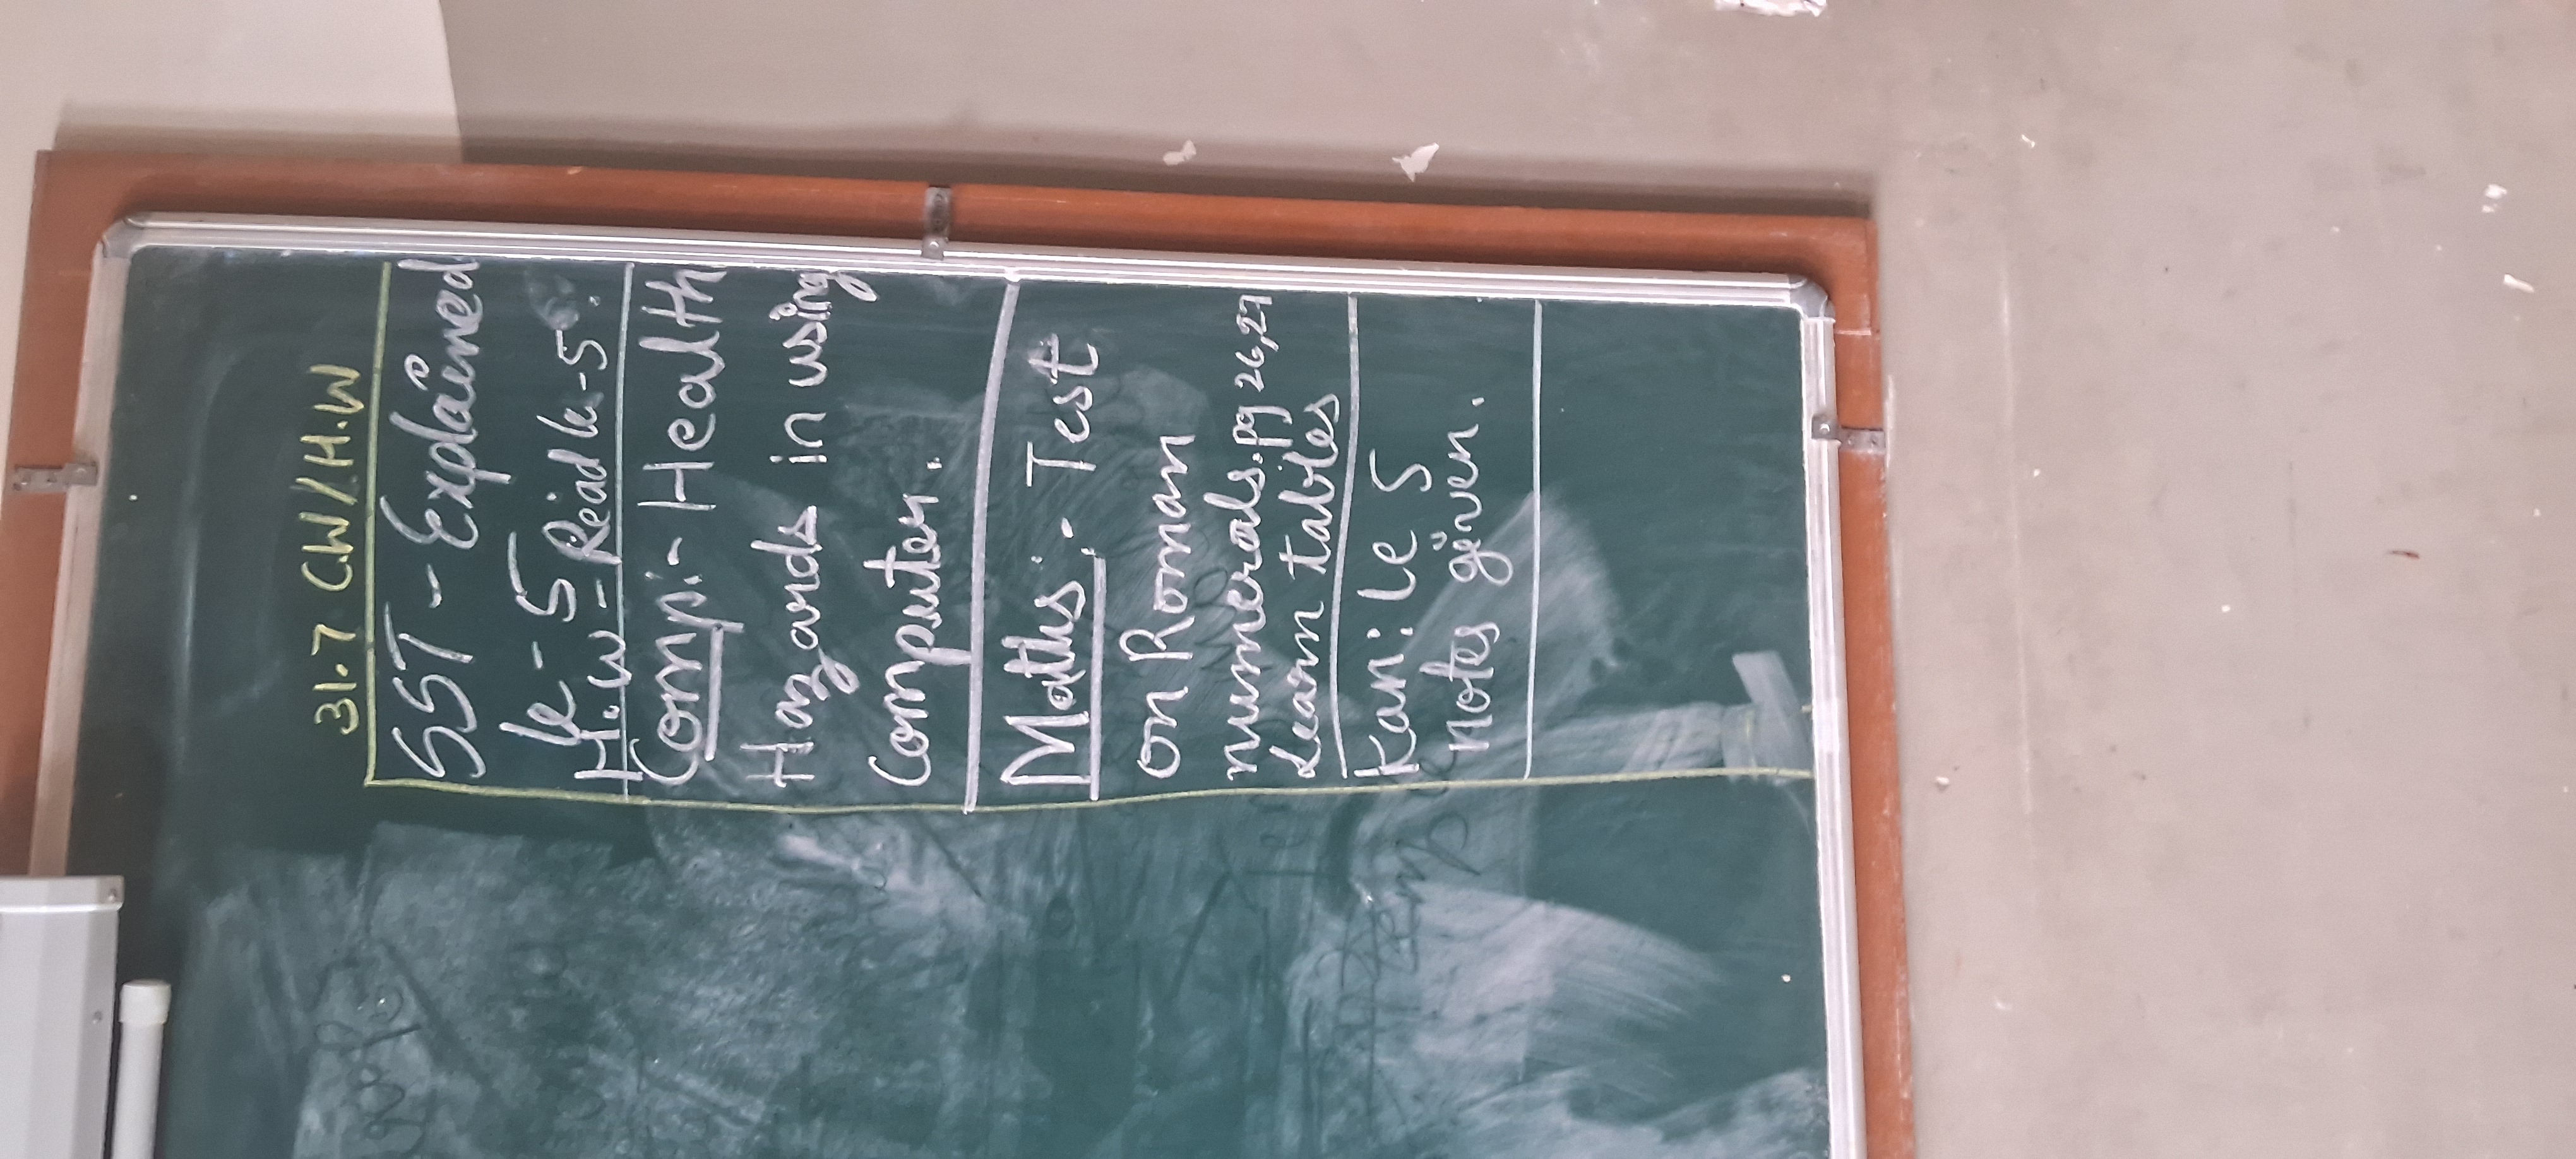 31.7 C.W/H.W
SST - Explained
le - 5
H.W - Read le-5.
Comp:- Health
Hazards in using
Computer.
Maths:- Test
on Roman
numerals. pg 26,27
Learn tables
Kan: Le 5
notes given.